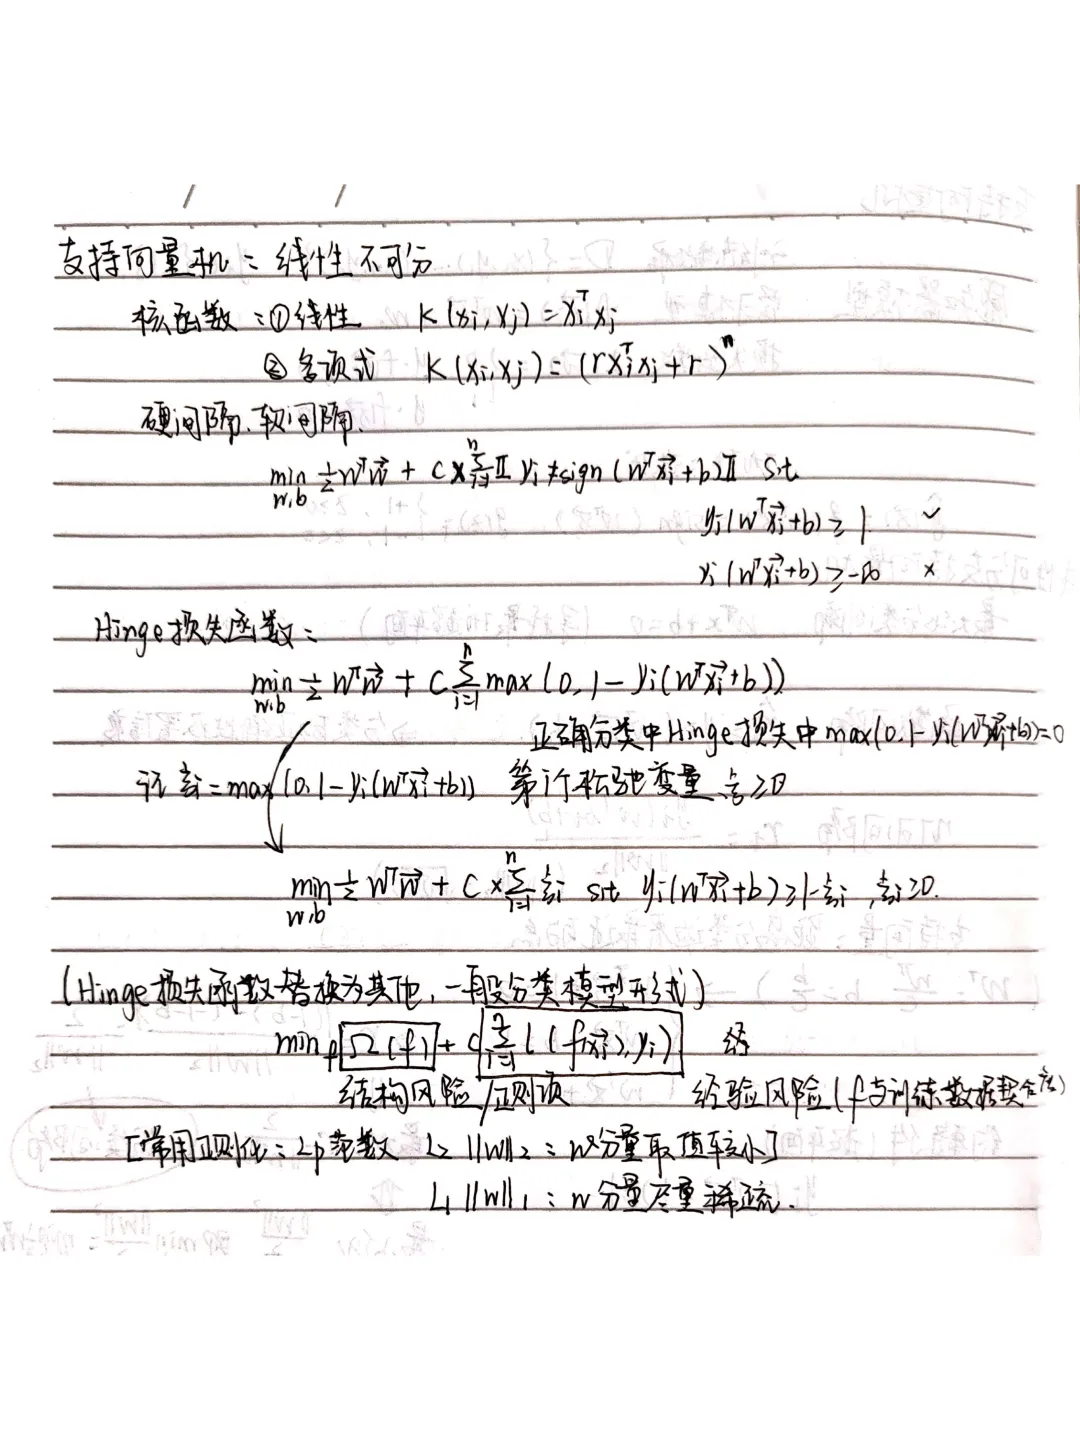 支持向量机：线性不可分
核函数：①线性 K(xi,xj)=xiᵀxj
②多项式 K(xi,xj)=(rxiᵀxj+r)ⁿ
硬间隔、软间隔.
min w,b ½wᵀw⃗ + C×Σⁿi=1 𝕀 yi≠sign(wᵀx⃗i+b)𝕀 s.t
yi(wᵀx⃗i+b)≥1 ✓
yi(wᵀx⃗i+b)≥-∞ ×
Hinge损失函数：
min w,b ½wᵀw⃗ + CΣⁿi=1 max(0,1-yi(wᵀx⃗i+b)).
正确分类中Hinge损失中max(0,1-yi(wᵀx⃗i+b))=0
记ξi=max(0,1-yi(wᵀx⃗i+b)) 第i个松弛变量ξ≥0
min w,b ½wᵀw⃗ + C×Σⁿi=1 ξi s.t yi(wᵀx⃗i+b)≥1-ξi,ξi≥0.
(Hinge损失函数替换为其他，一般分类模型形式)
min f Ω(f) + CΣⁿi=1 l(f(x⃗i),yi) 经
结构风险/正则项 经验风险(f与训练数据契合度)
[常用正则化：Lp范数 L₂ ||w||₂：w分量取值较小]
L₁ ||w||₁：w分量尽量稀疏.